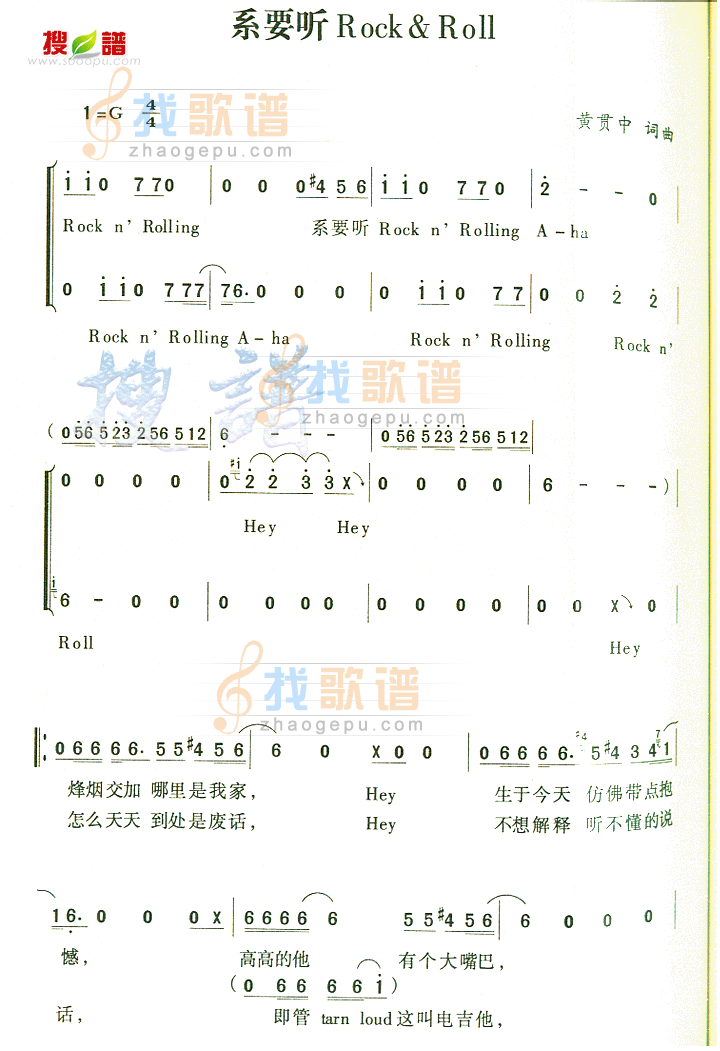 系要听Rock & Roll
搜譜
www.sooopu.com
1=G 4/4
找歌谱
zhaogepu.com
黄贯中 词曲
i i 0 7 7 0 | 0 0 0 #4 5 6 | i i 0 7 7 0 | 2 - - 0
Rock n' Rolling 系要听 Rock n' Rolling A-ha
0 i i 0 7 7 7 | 7 6. 0 0 0 | 0 i i 0 7 7 | 0 0 2 2
Rock n' Rolling A-ha Rock n' Rolling Rock n'
搜譜
找歌谱
zhaogepu.com
( 0 56 5 23 2 56 5 12 | 6 - - - | 0 56 5 23 2 56 5 12
0 0 0 0 | 0 #i 2 2 3 3 X | 0 0 0 0 | 6 - - - )
Hey Hey
i 6 - 0 0 | 0 0 0 0 | 0 0 0 0 | 0 0 X 0
Roll Hey
找歌谱
zhaogepu.com
0 6 6 6 6 6. 5 5 #4 5 6 | 6 0 X 0 0 | 0 6 6 6 6 6. #4 5 #4 3 4 7 1
烽烟交加 哪里是我家， Hey 生于今天 仿佛带点抱
怎么天天 到处是废话， Hey 不想解释 听不懂的说
1 6. 0 0 0 X | 6 6 6 6 6 6 5 5 #4 5 6 | 6 0 0 0
憾， 高高的他 有个大嘴巴，
( 0 6 6 6 6 i )
话， 即管 tarn loud这叫电吉他，